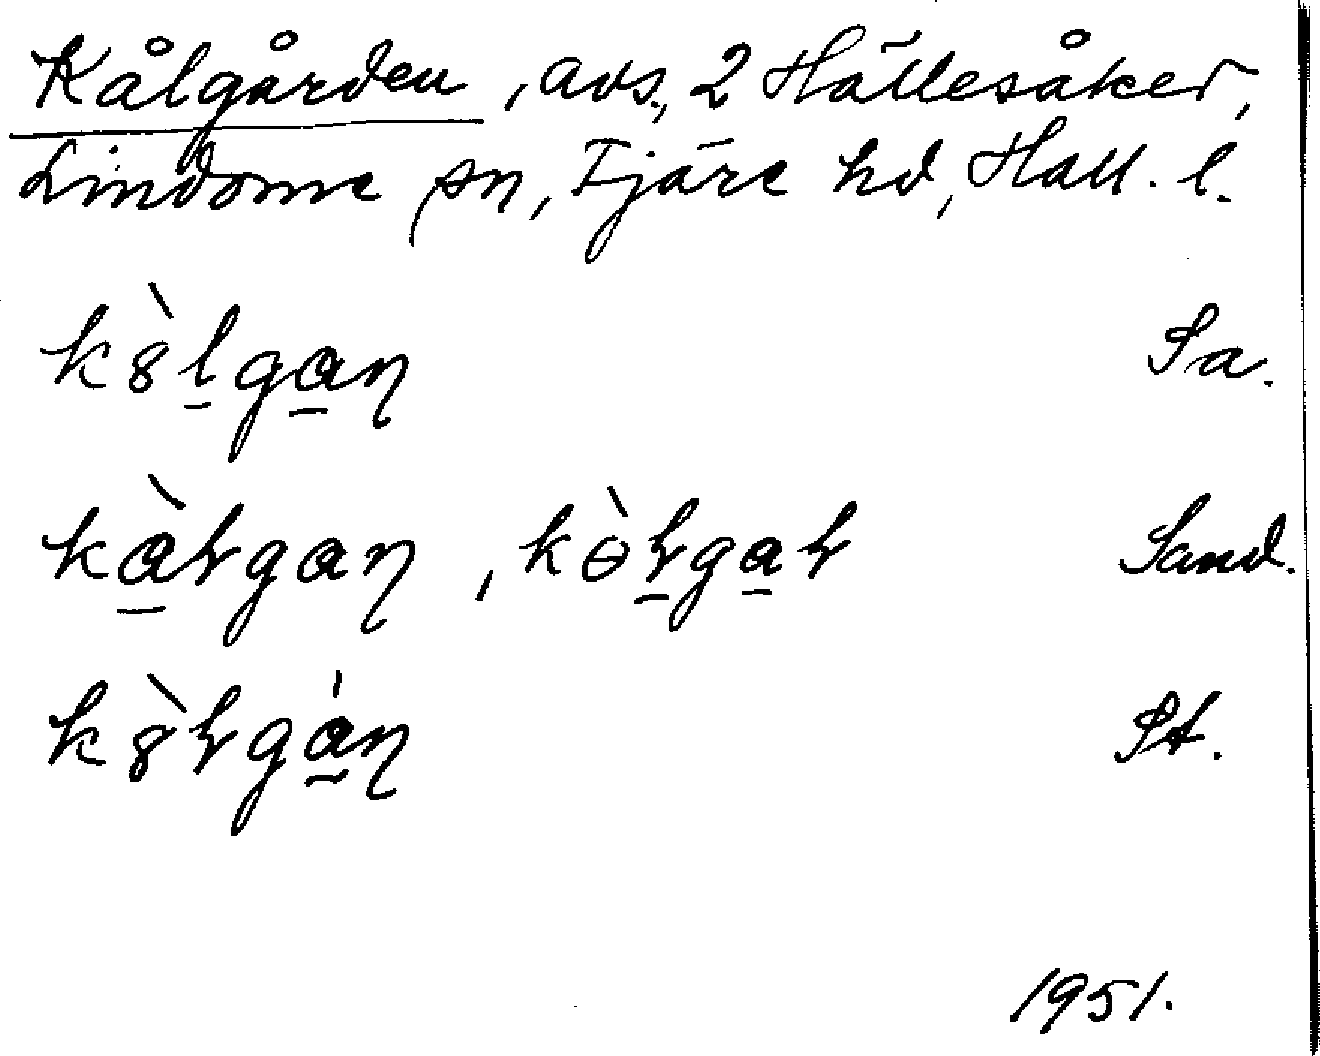 Kålgården, avs., 2 Hällesåker,
Lindome sn, Fjäre hd, Hall. l.
k8̀l̲ga̲ɳ Sa.
kà̲ɽgaɳ, kòɽ̲ga̲ɽ Sand.
k8̀ɽgá̲ɳ St.
1951.